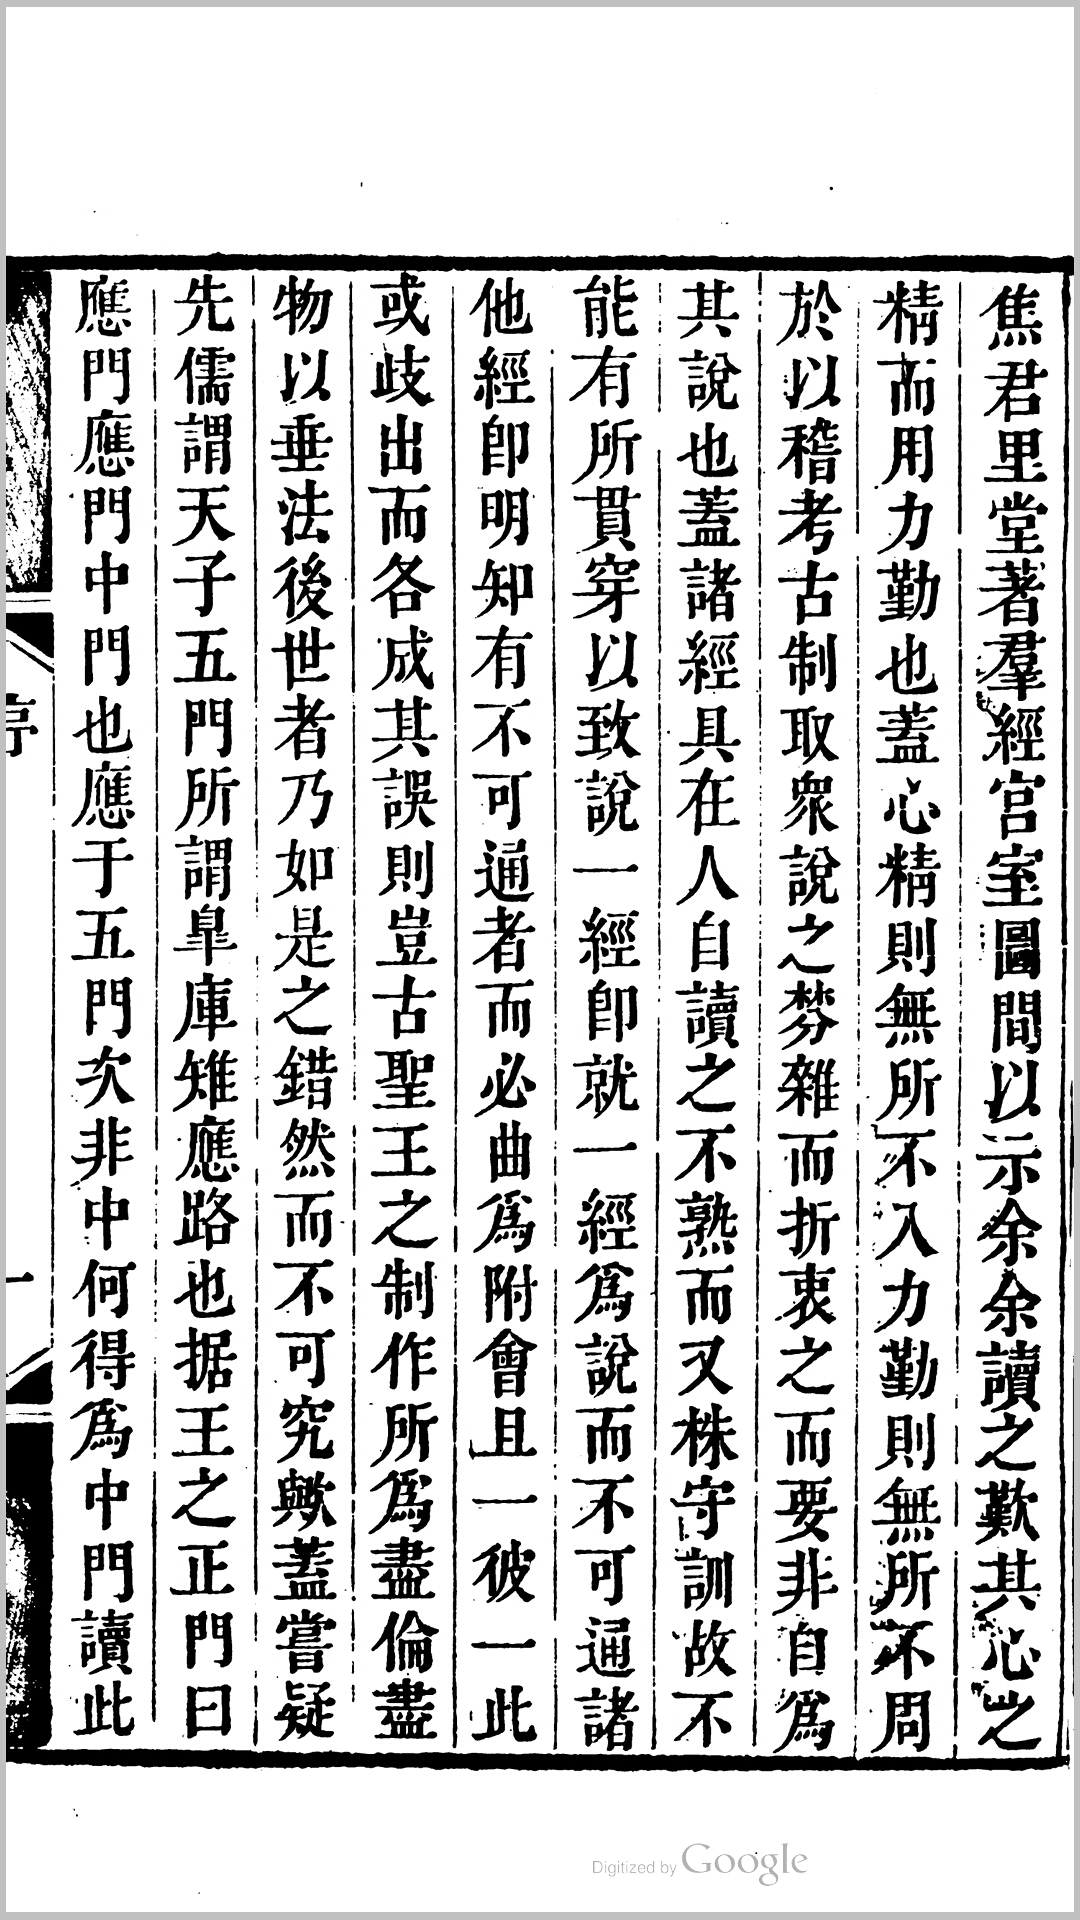 焦君里堂著羣經宮室圖間以示余余讀之歎其心之
精而用力勤也蓋心精則無所不入力勤則無所不周
於以稽考古制取衆說之棼雜而折衷之而要非自爲
其說也蓋諸經具在人自讀之不熟而又株守訓故不
能有所貫穿以致說一經卽就一經爲說而不可通諸
他經卽明知有不可通者而必曲爲附會且一彼一此
或歧出而各成其誤則豈古聖王之制作所爲盡倫盡
物以垂法後世者乃如是之錯然而不可究歟蓋嘗疑
先儒謂天子五門所謂臯庫雉應路也据王之正門曰
應門應門中門也應于五門次非中何得爲中門讀此
序
一
Digitized by Google